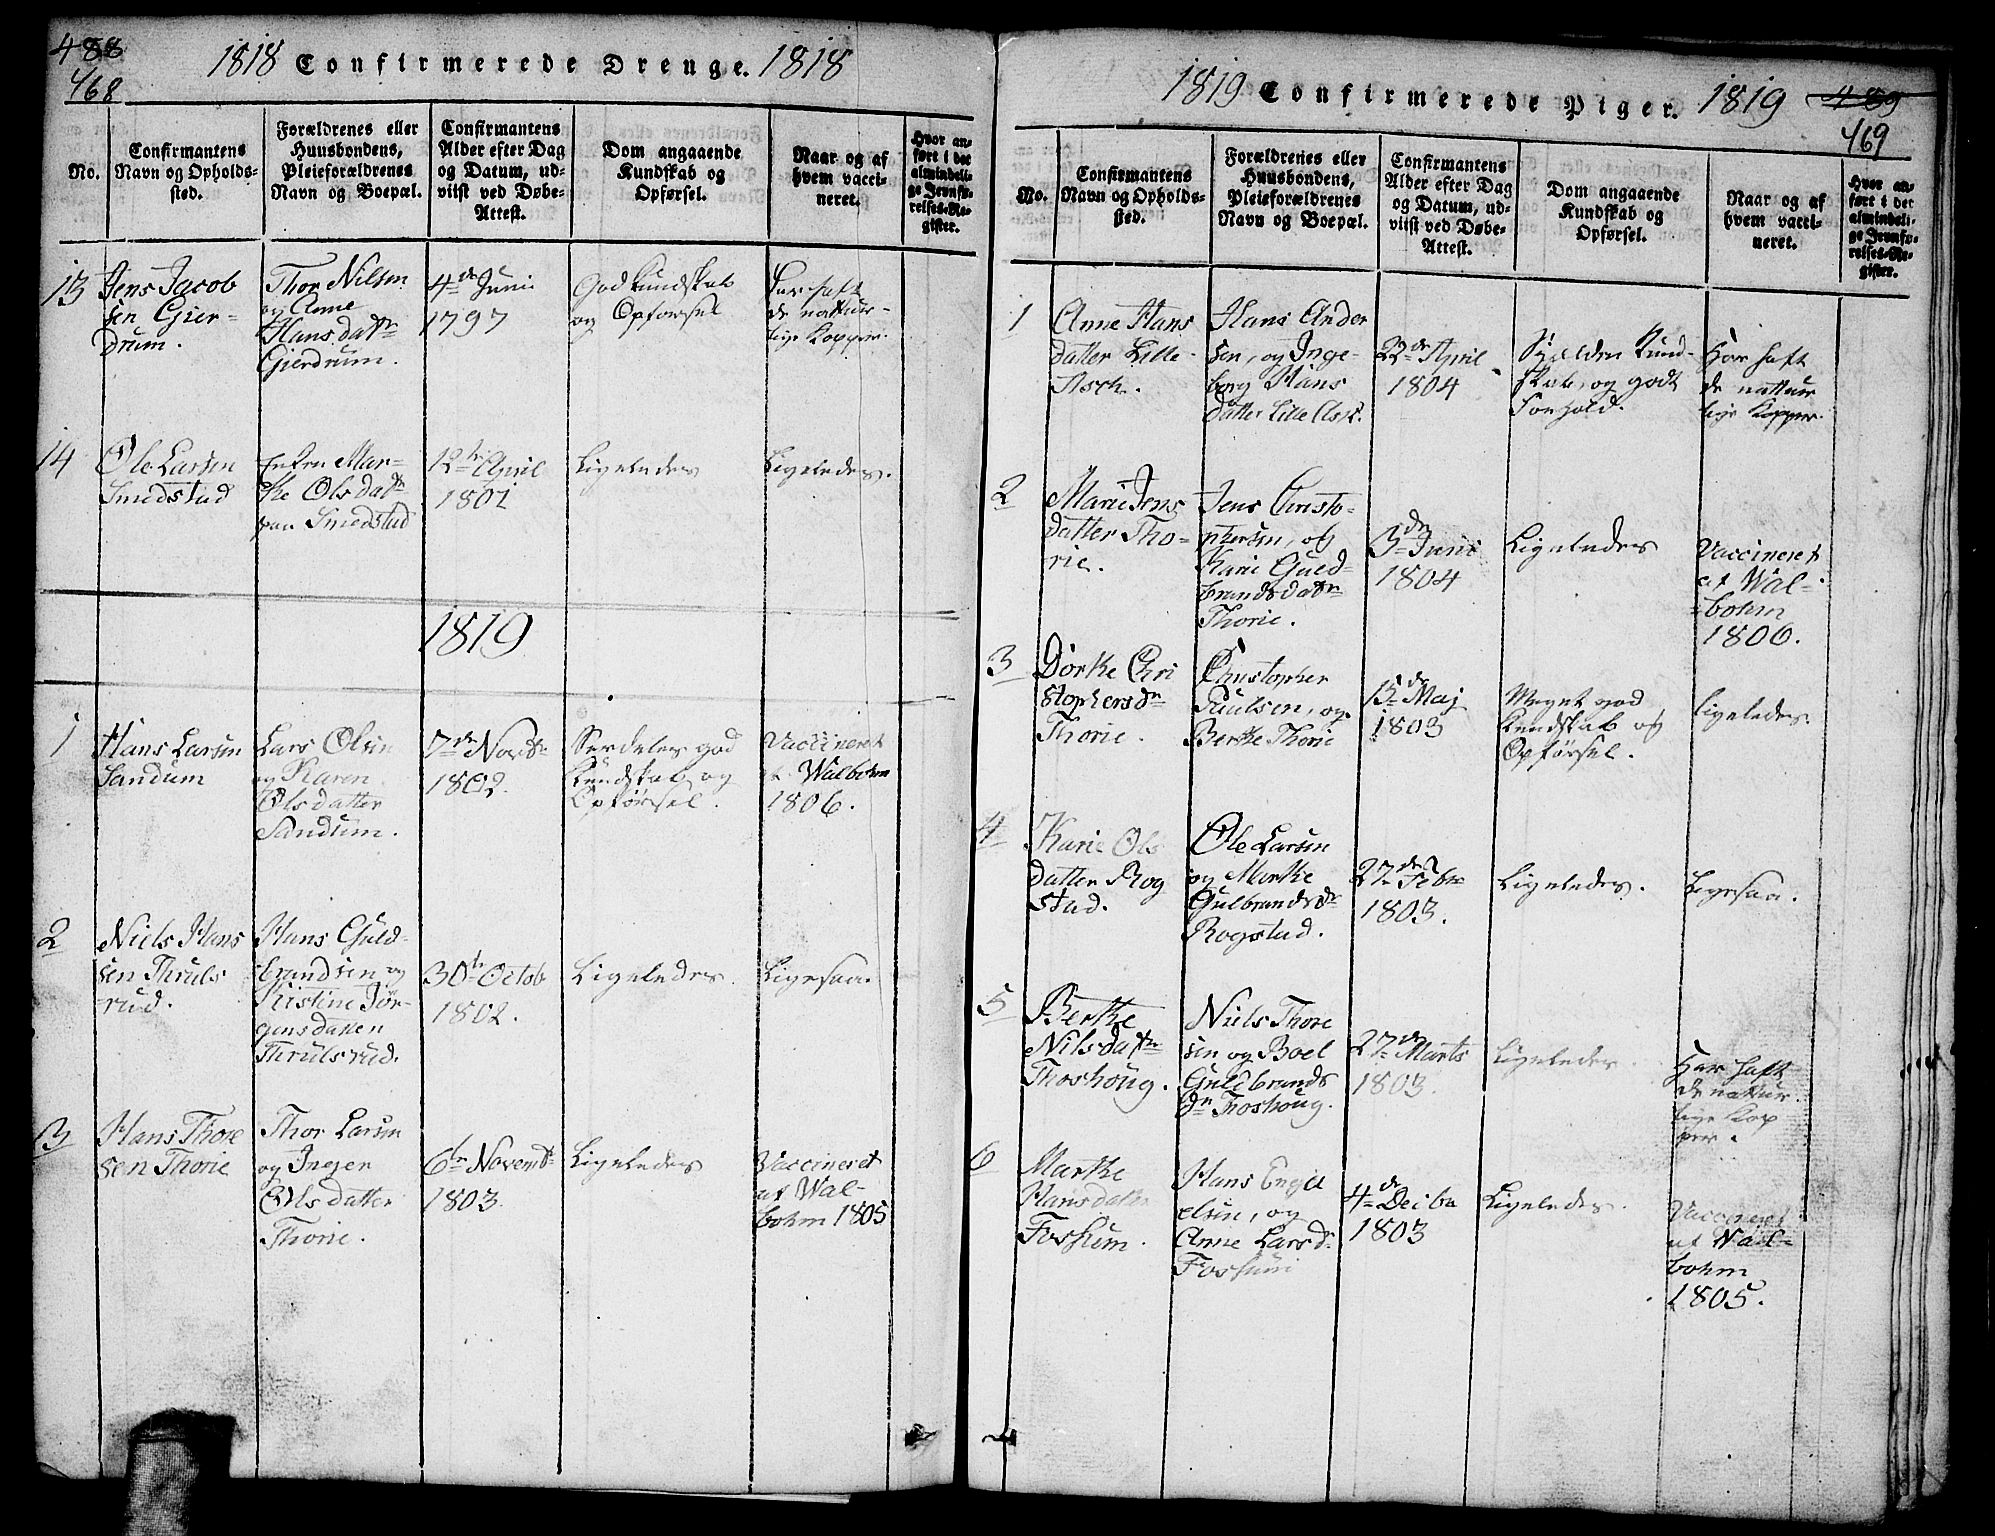 488
468
1818 Confirmerede Drenge. 1818
No.
Confirmantens
Navn og Opholds-
sted.
Forældrenes eller
Huusbondens,
Pleieforældrenes
Navn og Boepæl.
Confirmantens
Alder efter Dag
og Datum, ud-
viist ved Døbe-
Attest.
Dom angaaende
Kundskab og
Opførsel.
Naar og af
hvem vacci-
neret.
Hvor an-
ført i det
almindeli-
ge Jevnfø-
relses-Re-
gister.
13
Jens Jacob
sen Gjer-
drum.
Thor Nilsen
og Anne
Hansdatr
Gjerdrum.
4de Juni
1797
God Kundskab
og Opførsel
Har haft
de nattur-
lige Kopper.
14
Ole Larsen
Smedstad
Enken Mar-
the Olsdatr
paa Smedstad
12te April
1801
Ligeledes
Ligeledes.
1819
1
Hans Larsen
Sandum
Lars Olsen
og Karen
Olsdatter
Sandum.
7de Novbr
1802.
Serdeles god
Kundskab og
Opførsel.
Vaccineret
af Walbohm
1806.
2
Niels Hans
sen Thruls
rud.
Hans Guld-
brandsen og
Kistine Jør-
gensdatter
Thrulsrud.
30te Octob
1802.
Ligeledes.
Ligesaa.
3
Hans Thore
sen Thorie
Thor Larsen
og Inger
Olsdatter
Thorie.
6te Novemb
1803.
Ligeledes
Vaccineret
af Wal-
bohm 1805
1819 Confirmerede Piger. 1819
489
469
No.
Confirmantens
Navn og Opholds-
sted.
Forældrenes eller
Huusbondens,
Pleieforældrenes
Navn og Boepæl.
Confirmantens
Alder efter Dag
og Datum, ud-
viist ved Døbe-
Attest.
Dom angaaende
Kundskab og
Opførsel.
Naar og af
hvem vacci-
neret.
Hvor an-
ført i det
almindeli-
ge Jevnfø-
relses-Re-
gister.
1
Anne Hans
datter Lille
Asch.
Hans Ander
sen, og Inge-
borg Hans
datter Lille Ask.
22de April
1804
Sjelden Kund-
skab, og godt
Forhold.
Har haft
de nattur
lige Kopper.
2
Marie Jens
datter Tho-
rie.
Jens Christo-
phersen, og
Karie Guld-
brandsdatr
Thorie.
3de Juni
1804
Ligeledes
Vaccineret
af Wal-
bohm
1806.
3
Dorthe Chri
stophersdr
Thorie.
Christopher
Paulsen, og
Berthe Thorie
15de Maj
1803
Meget god
Kundskab og
Opførsel.
Ligeledes
4
Karie Ols
datter Rog
stad.
Ole Larsen
og Marthe
Gulbrandsdr
Rogstad.
27de Febr
1803.
Ligeledes.
Ligesaa.
5
Berthe
Nilsdatr
Thoshoug.
Niels Thore
sen og Boel
Guldbrands
dr Thoshoug.
27de Marts
1803.
Ligeledes.
Har haft
de nattur
lige Kop
per.
6
Marthe
Hansdatter
Foshum.
Hans Engel
elsen, og
Anne Larsdr
Foshum
4de Decbr
1803
Ligeledes.
Vaccineret
af Wal-
bohm
1805.